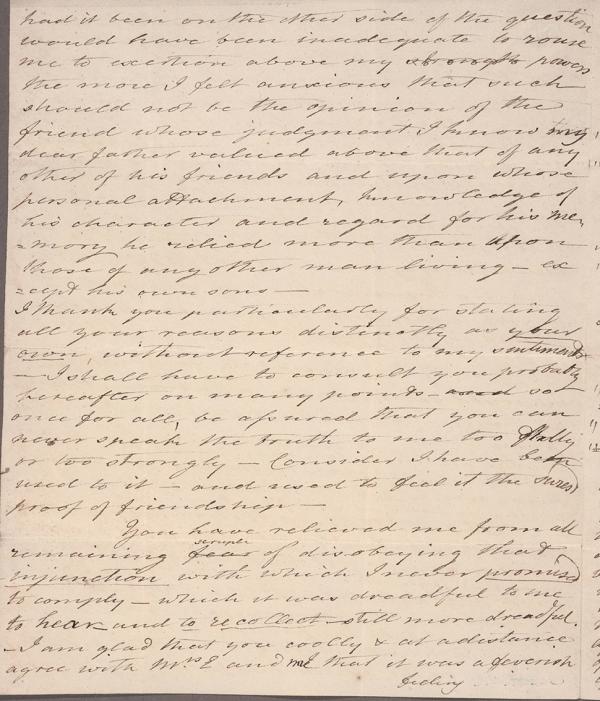 had it been on the other side of the question
would have been inadequate to rouse
me to exertion above my strength powers
the more I felt anxious that such
should not be the opinion of the
friend whose judgment I know my
dear father valued above that of any
other of his friends and upon whose
personal attachment, knowledge of
his character and regard for his me,
=mory he relied more than upon
those of any other man living – ex
=cept his own sons –
I thank you particularly for stating
all your reasons distinctly as your
own, without reference to my sentiments
– I shall have to consult you probably
hereafter on many points – and so
once for all, be assured that you can
never speak the truth to me too flatly
or too strongly – Consider I have been
used to it – and used to feel it the surest
proof of friendship –
You have relieved me from all
scruple
remaining fear of disobeying that
injunction with which I never promised
to comply – which it was dreadful to me
to hear and to recollect still more dreadful.
– I am glad that you coolly & at a distance
agree with Mrs E and me that it was a feverish
feeling